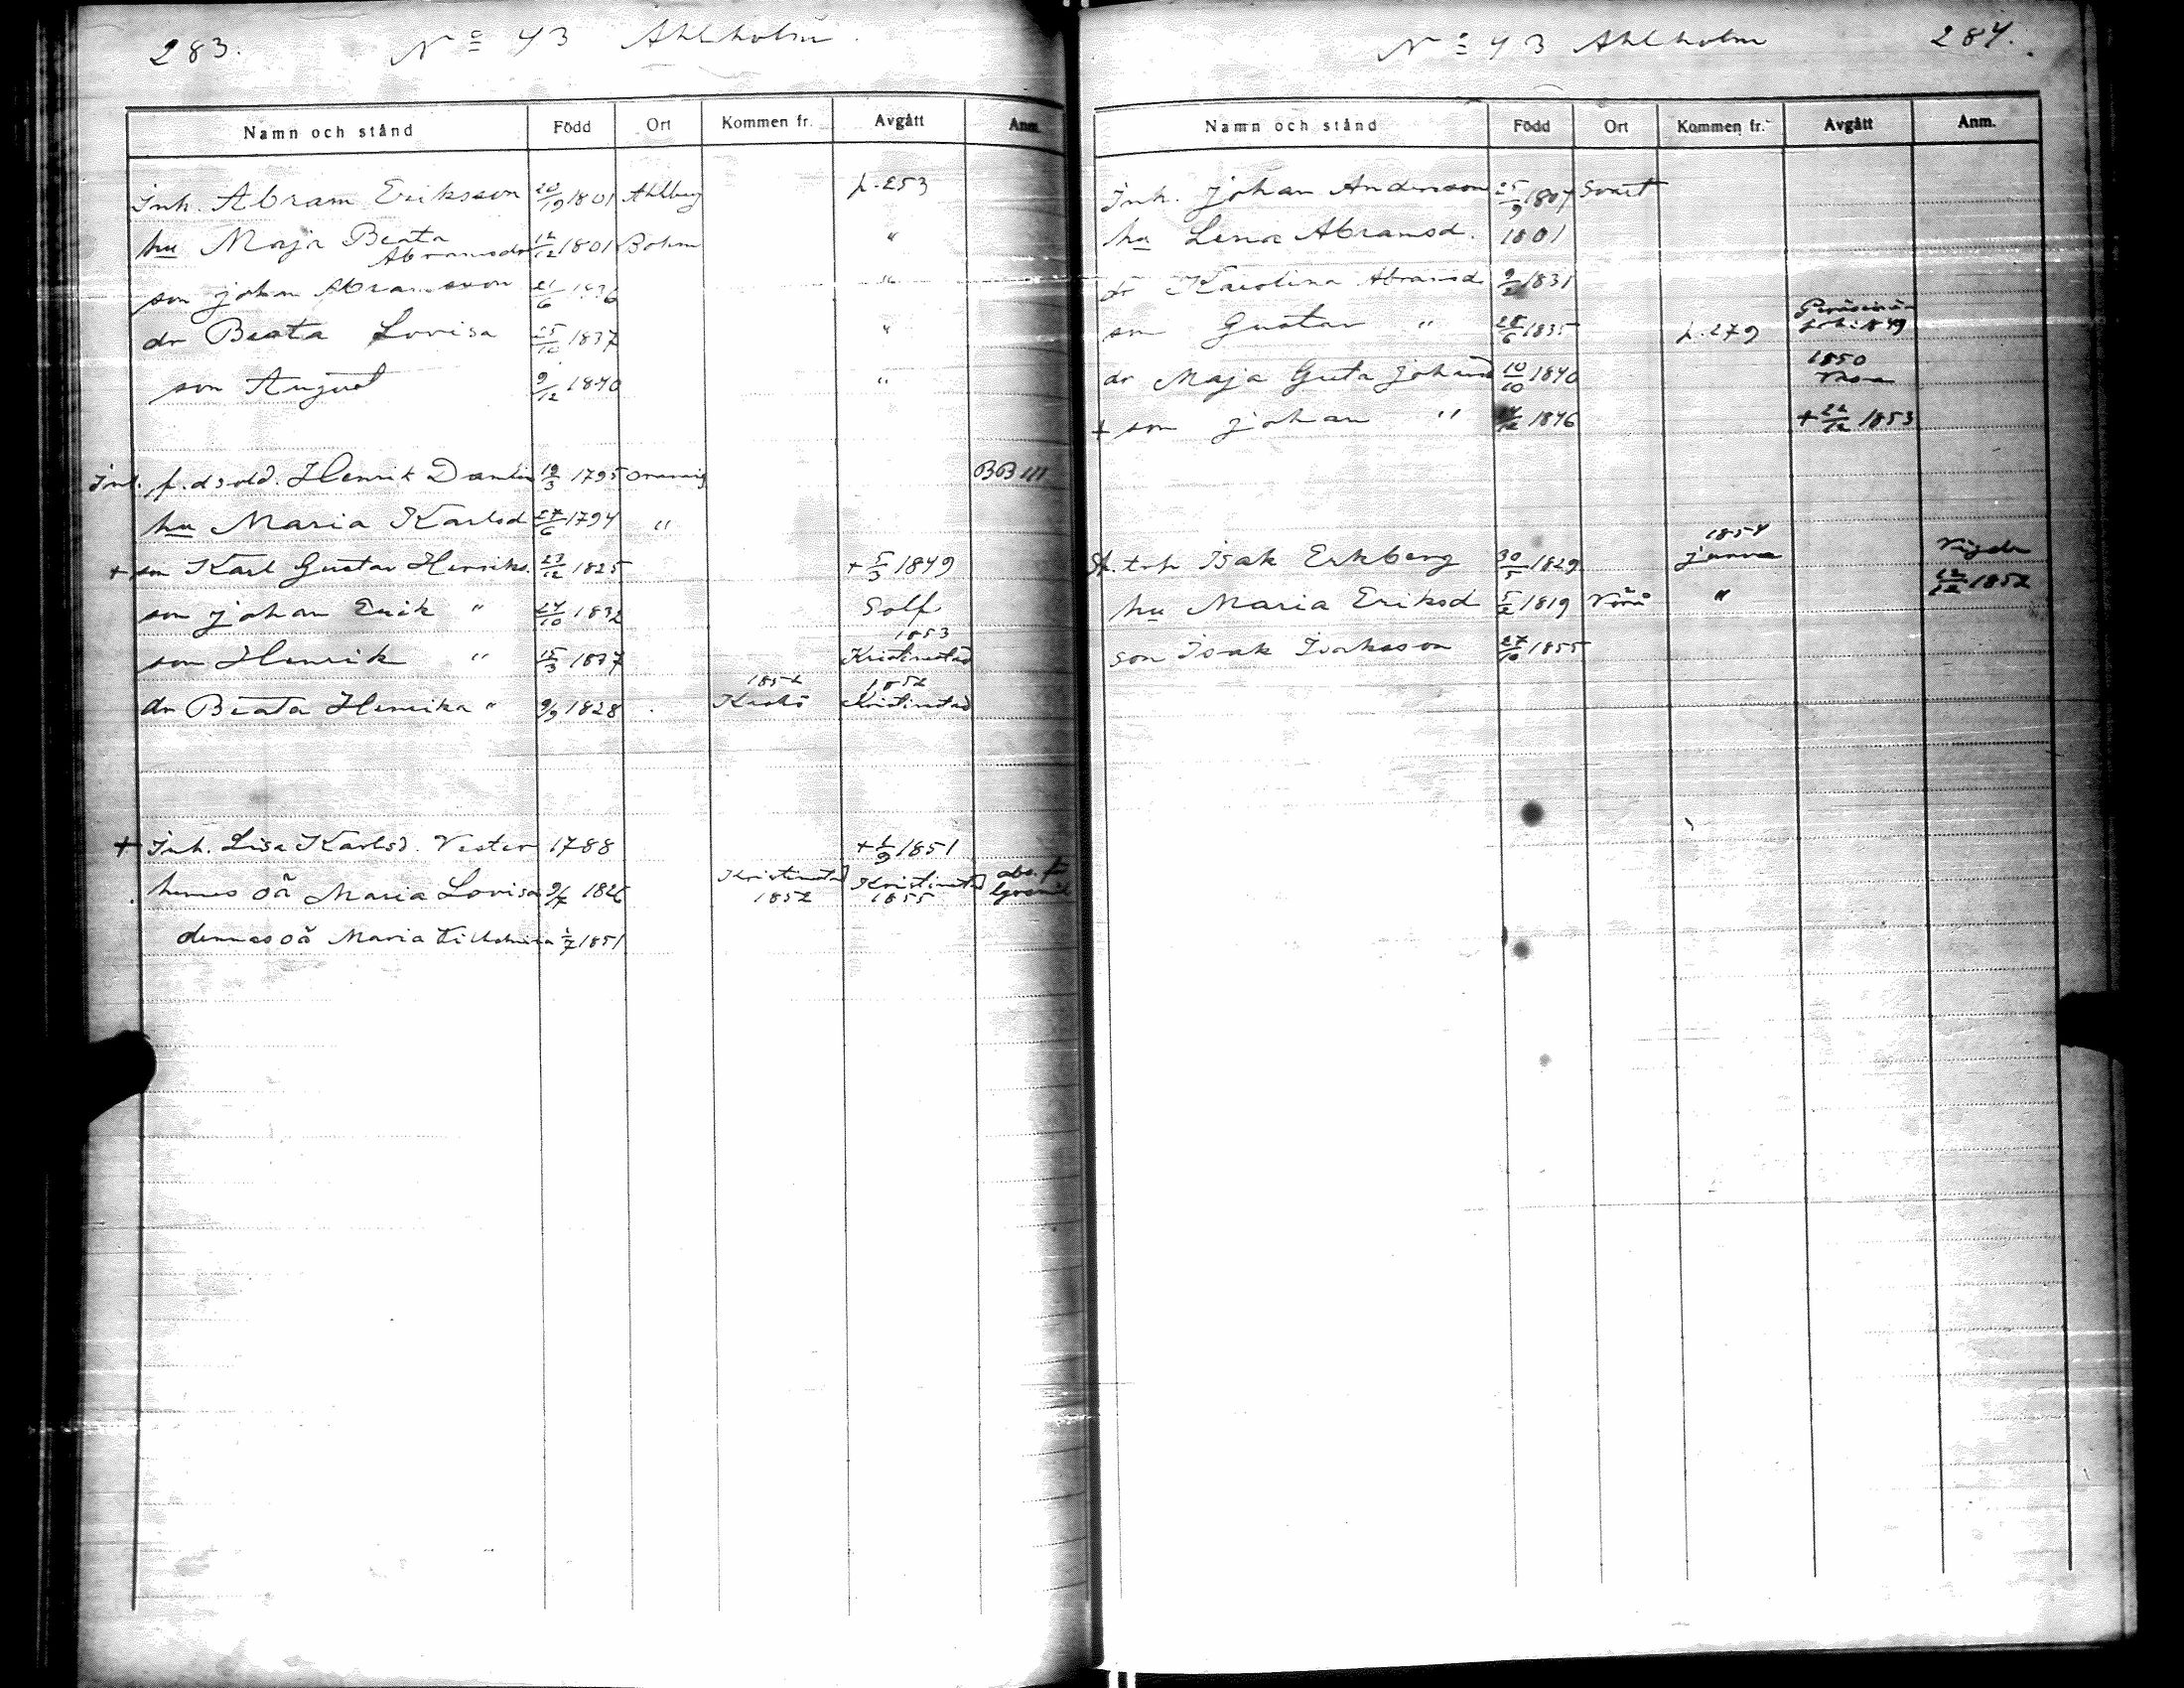 283. No 43 Ahlholm.
Namn och stånd Född Ort Kommen fr. Avgått Anm.
Inh. Abram Eriksson 20/19 1801 Ahlberg p. 253
hu Maja Beata Abramsdr 12/12 1801 Bohm "
son Johan Abramsson 21/6 1836 "
dr Beata Lovisa 25/10 1837 "
son August 9/12 1840 "
Inh. f.d. sold. Henrik Damlin 19/3 1795 BB III
hu Maria Karlsd 27/6 1794 "
+ son Karl Gustav Henriks. 23/12 1825 + 5/3 1849
son Johan Erik " 24/10 1832 Solf
son Henrik " 15/3 1837 1853 Kristinestad
dr Beata Henrika " 9/9 1828 1852 Kaskö 1852 Kristinestad
+ Inh. Lisa Karlsd. Vester 1788 + 1/9 1851
hennes oä Maria Lovisa 9/7 1826 Kristinestad 1852 Kristinestad 1855
dennas oä Maria Vilhelmina 1/7 1851
No 43 Ahlholm 284.
Namn och stånd Född Ort Kommen fr. Avgått Anm.
Inh. Johan Andersson 25/9 1807 Svart
hu Lena Abramsd. 1801
dr Karolina Abramsd 9/2 1831
son Gustav " 28/6 1835 p. 279 1849
dr Maja Greta Johansd 10/10 1840 1850 Vasa
+ son Johan " 1846 + 22/12 1853
St. trp Isak Erkberg 30/5 1829 1854 Jurva Vigda
hu Maria Eriksd 5/2 1819 Vörå " 12/12 1852
son Isak Isaksson 27/10 1855